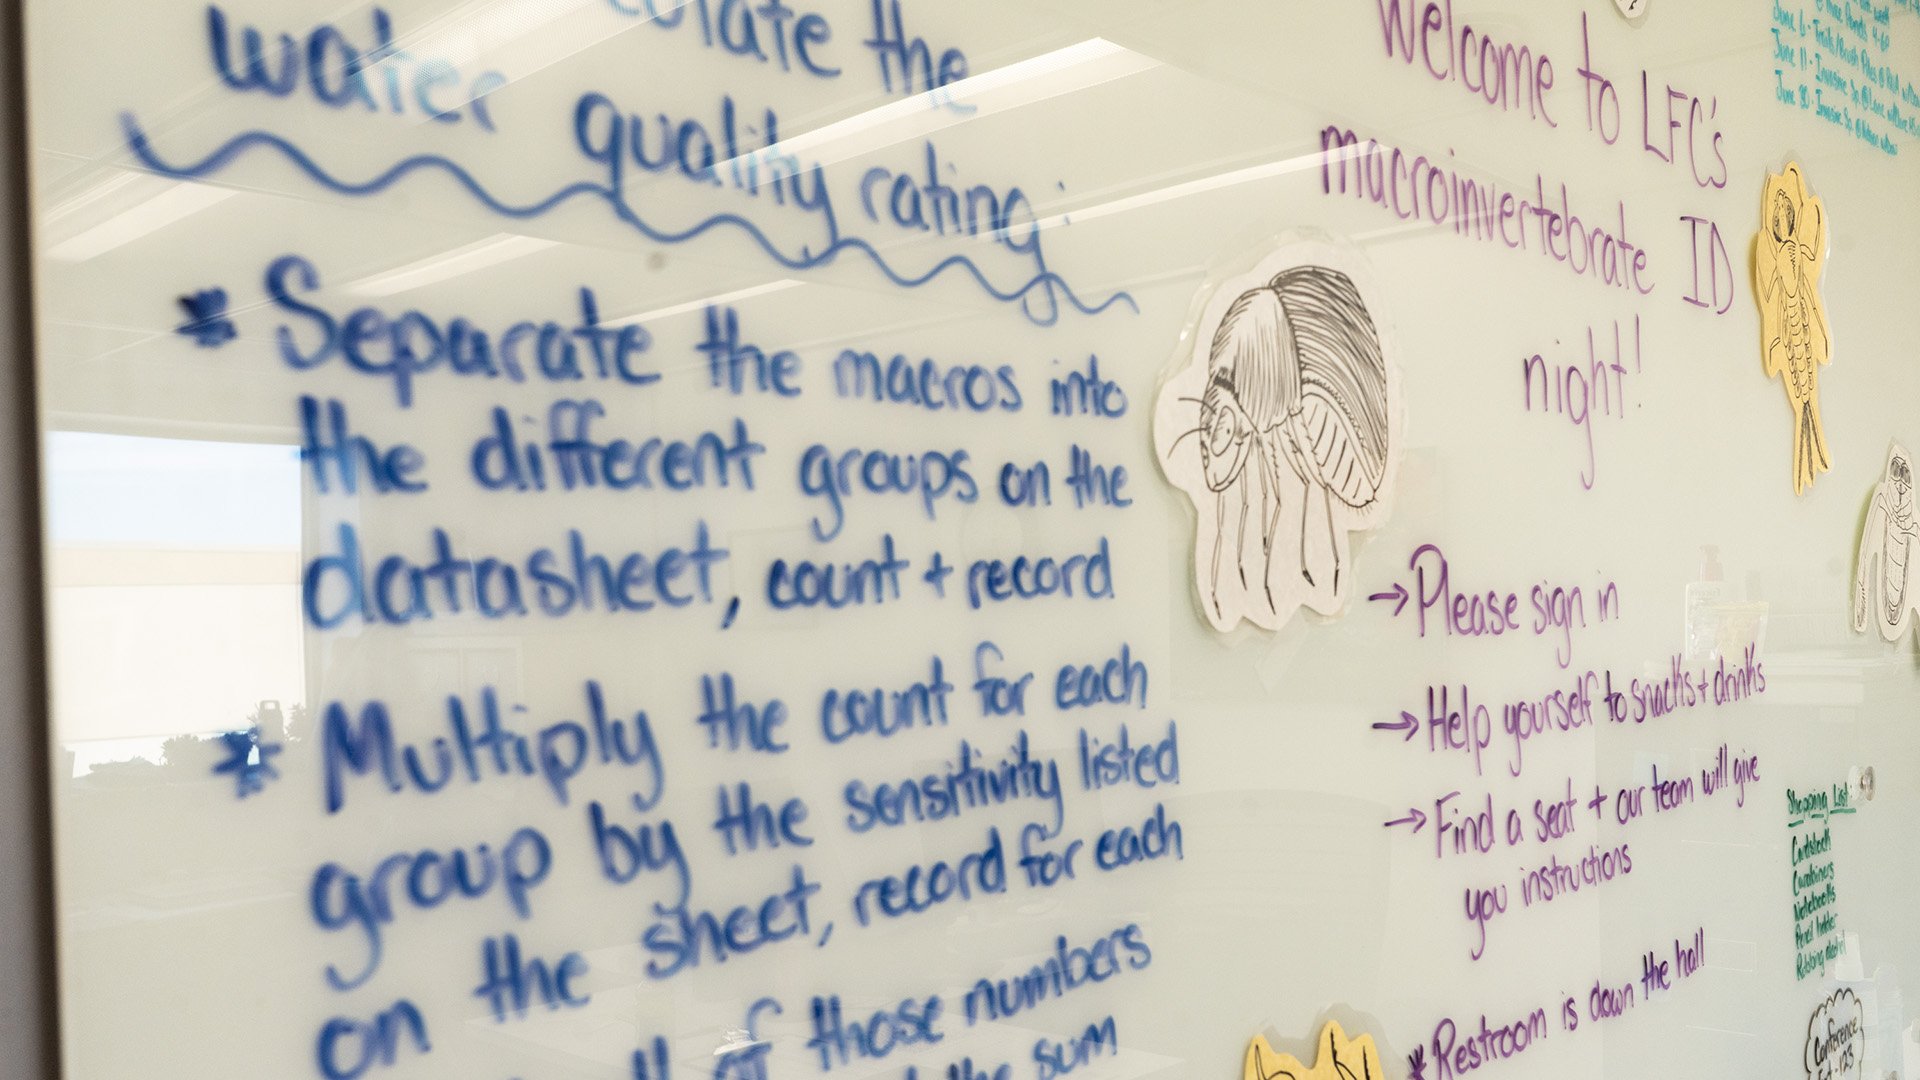 the
water quality rating:
* Separate the macros into
the different groups on the
datasheet, count + record
* Multiply the count for each
group by the sensitivity listed
on the sheet, record for each
of those numbers
sum
Welcome to LFC's
macroinvertebrate ID
night!
→ Please sign in
→ Help yourself to snacks + drinks
→ Find a seat + our team will give
you instructions
* Restroom is down the hall
June 6 -
June 11 - Invasive Sp.
June 20 - Invasive Sp.
Shopping List:
Cardstock
Carabiners
Notebooks
Rubbing alcohol
Conference
123